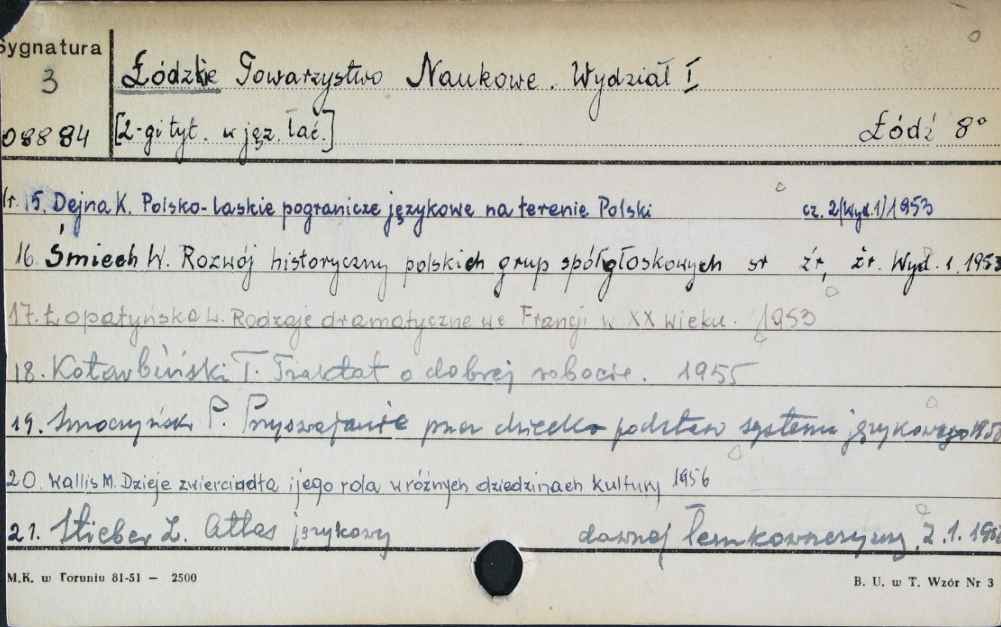 Sygnatura
3
Łódzkie Towarzystwo Naukowe. Wydział I
08884 [2-gi tyt. w jęz. łac.] Łódź 8°
15. Dejna K. Polsko-laskie pogranicze językowe na terenie Polski cz. 2/Wyd.1/1953
16. Śmiech W. Rozwój historyczny polskich grup spółgłoskowych sr źr, żr. Wyd. 1, 1953
17. Łopatyńska L. Rodzaje dramatyczne we Francji w XX wieku. 1953
18. Kotarbiński T. Traktat o dobrej robocie. 1955
19. Smoczyński P. Przyswajanie przez dziecko podstaw systemu językowego
20. Wallis M. Dzieje zwierciadła i jego rola w różnych dziedzinach kultury 1956
21. Stieber Z. Atlas językowy dawnej Łemkowszczyzny, Z. 1.
M.K. w Toruniu 81-51 — 2500 B. U. w T. Wzór Nr 3